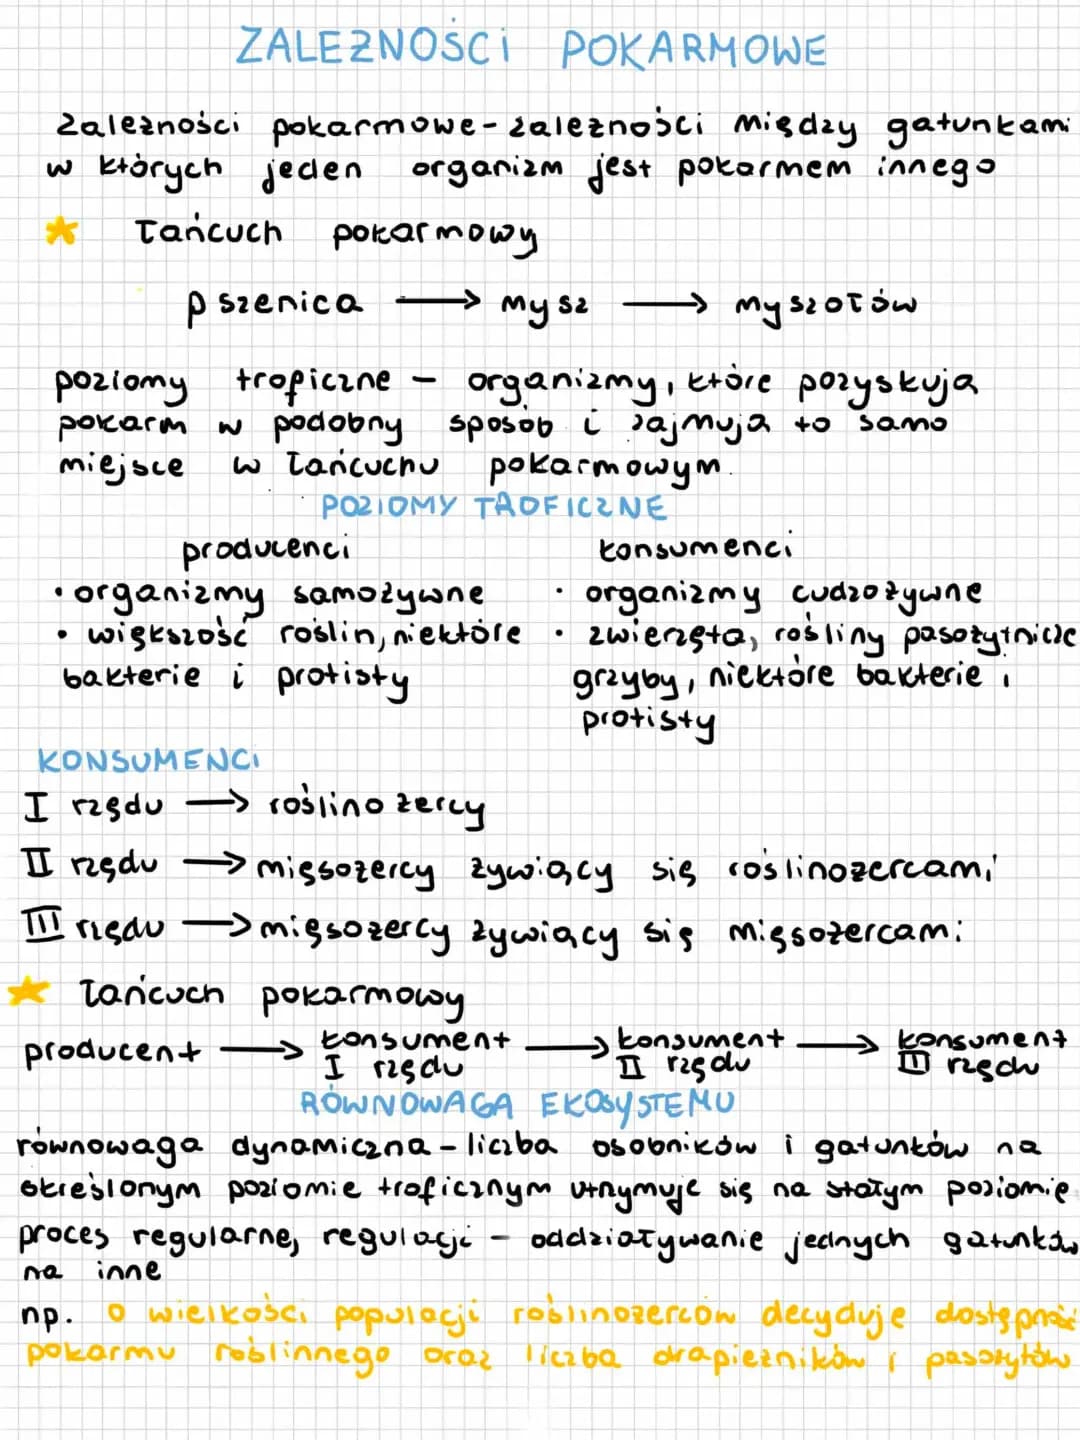 ZALEŻNOŚCI POKARMOWE
Zależności pokarmowe - zależności między gatunkami
w których jeden organizm jest pokarmem innego
Łańcuch pokarmowy
pszenica → mysz → myszołów
poziomy troficzne - organizmy, które pozyskują
pokarm w podobny sposób i zajmują to samo
miejsce w łańcuchu pokarmowym.
POZIOMY TROFICZNE
producenci
• organizmy samożywne
• większość roślin, niektóre
bakterie i protisty
konsumenci
• organizmy cudzożywne
• zwierzęta, rośliny pasożytnicze
grzyby, niektóre bakterie i
protisty
KONSUMENCI
I rzędu → roślinożercy
II rzędu → mięsożercy żywiący się roślinożercami
III rzędu → mięsożercy żywiący się mięsożercami
łańcuch pokarmowy
producent → konsument I rzędu → konsument II rzędu → konsument III rzędu
RÓWNOWAGA EKOSYSTEMU
równowaga dynamiczna - liczba osobników i gatunków na
określonym poziomie troficznym utrzymuje się na stałym poziomie
proces regularnej regulacji - oddziaływanie jednych gatunków
na inne
np. o wielkości populacji roślinożerców decyduje dostępność
pokarmu roślinnego oraz liczba drapieżników i pasożytów